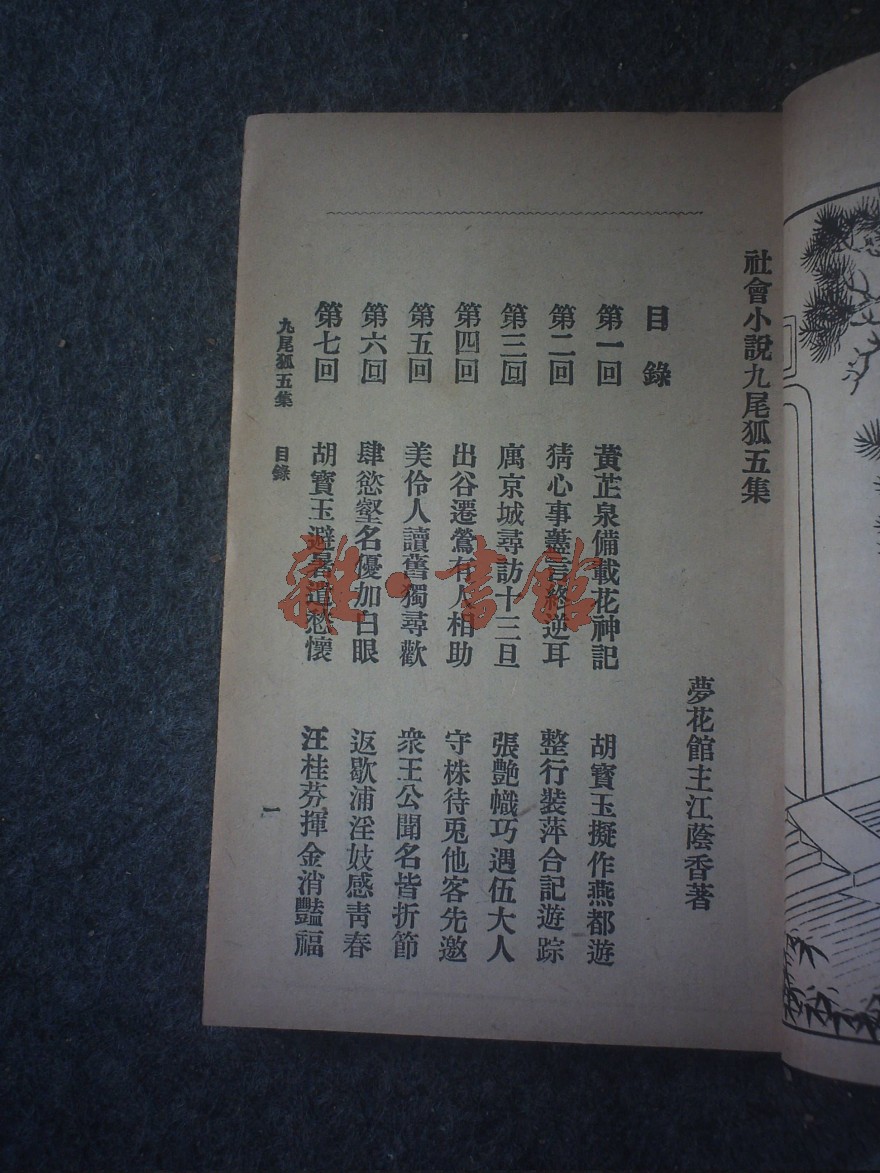 社會小說九尾狐五集
夢花館主江蔭香著
目錄
第一回 黃芷泉備載花神記 胡寶玉擬作燕都遊
第二回 猜心事藎言終逆耳 整行裝萍合記遊踪
第三回 寓京城尋訪十三旦 張艷幟巧遇伍大人
第四回 出谷遷鶯有人相助 守株待兎他客先邀
第五回 美伶人讀舊獨尋歡 衆王公聞名皆折節
第六回 肆慾壑名優加白眼 返歇浦淫妓感靑春
第七回 胡寶玉避暑遣愁懷 汪桂芬揮金消豔福
九尾狐五集 目錄 一
雜·書館